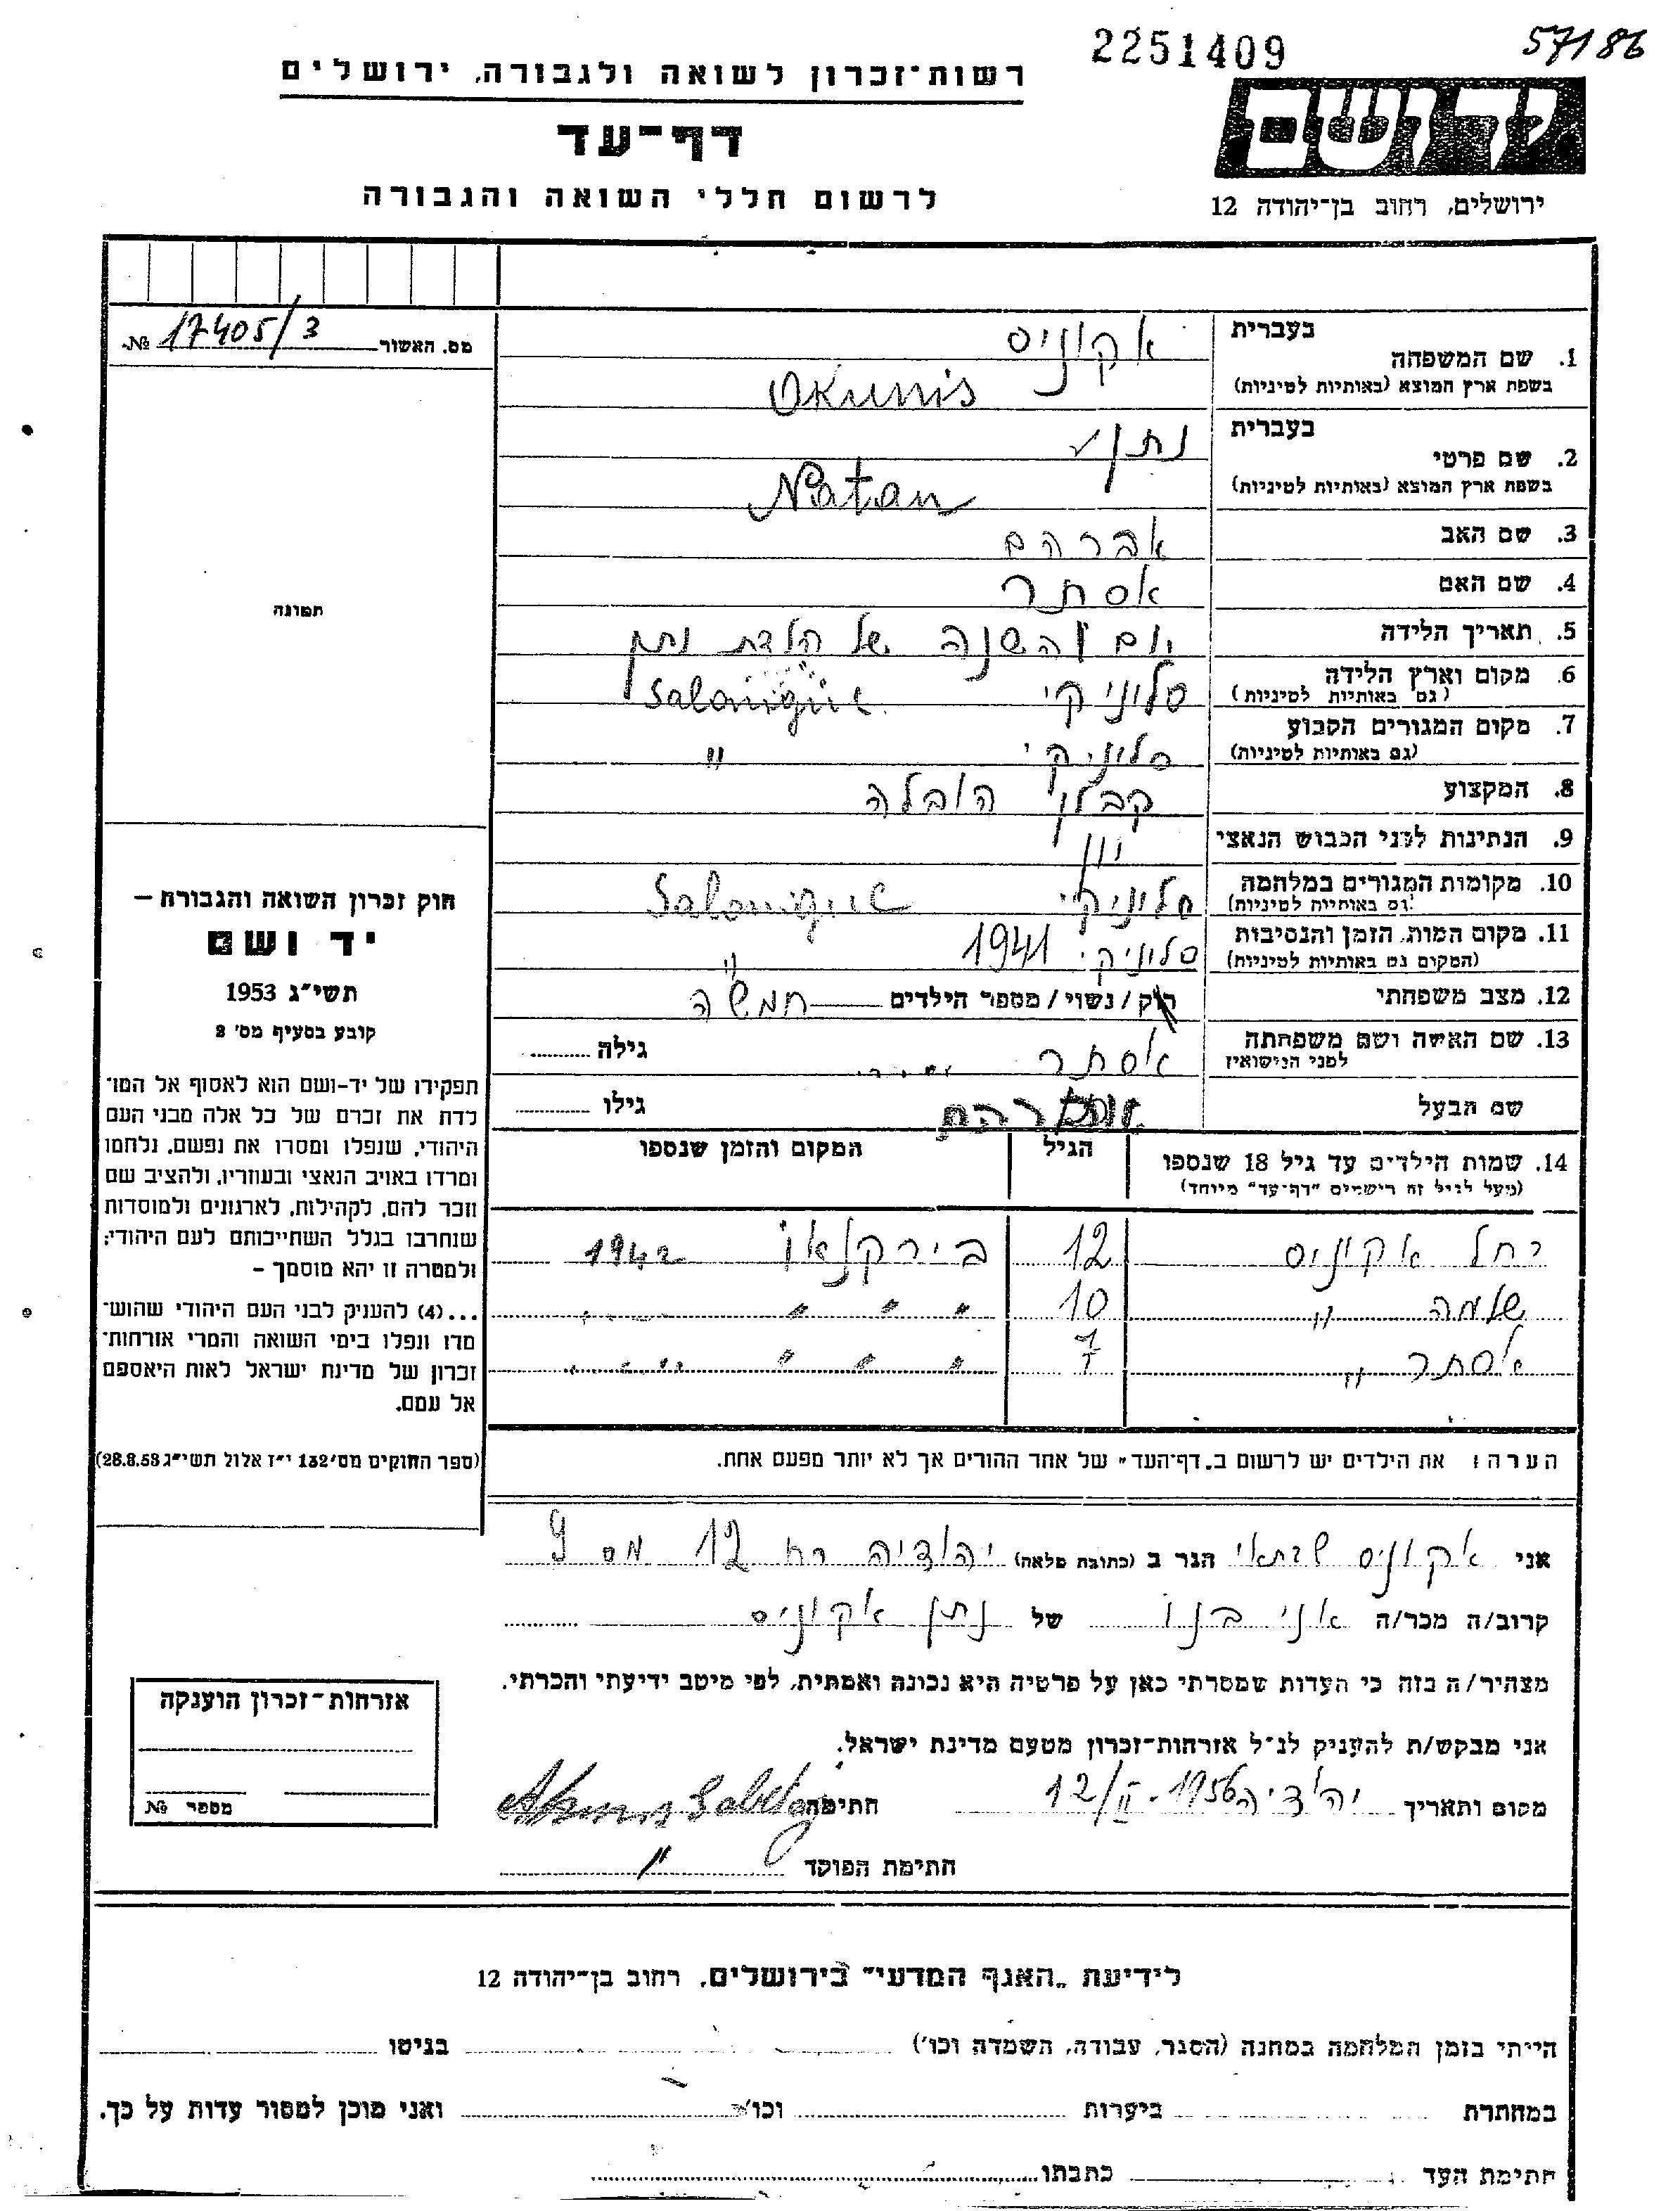 2251409
57186
רשות-זכרון לשואה ולגבורה, ירושלים
יד ושם
דף-עד
לרשום חללי השואה והגבורה
ירושלים, רחוב בן-יהודה 12
מס. האשור 17405/3 №
בעברית אקוניס
1. שם המשפחה
בשפת ארץ המוצא (באותיות לטיניות) Okunis
בעברית נתן
2. שם פרטי
בשפת ארץ המוצא (באותיות לטיניות) Natan
3. שם האב אברהם
4. שם האם אסתר
5. תאריך הלידה יום והשנה של הלדת נתן
6. מקום וארץ הלידה סלוניקי Salonique
(גם באותיות לטיניות)
7. מקום המגורים הקבוע סלוניקי "
(גם באותיות לטיניות)
8. המקצוע קבלן הובלה
9. הנתינות לפני הכבוש הנאצי יוון
10. מקומות המגורים במלחמה סלוניקי Salonique
(גם באותיות לטיניות)
11. מקום המות, הזמן והנסיבות סלוניקי 1941 "
(המקום גם באותיות לטיניות)
12. מצב משפחתי רוק / נשוי / מספר הילדים חמשה
13. שם האשה ושם משפחתה אסתר גילה
לפני הנישואין
שם הבעל גילו
תמונה
חוק זכרון השואה והגבורה –
יד ושם
תשי"ג 1953
קובע בסעיף מס' 2
תפקידו של יד-ושם הוא לאסוף אל המו-
לדת את זכרם של כל אלה מבני העם
היהודי, שנפלו ומסרו את נפשם, נלחמו
ומרדו באויב הנאצי ובעוזריו, ולהציב שם
וזכר להם, לקהילות, לארגונים ולמוסדות
שנחרבו בגלל השתייכותם לעם היהודי;
ולמטרה זו יהא מוסמך –
...(4) להעניק לבני העם היהודי שהוש-
מדו ונפלו בימי השואה והמרי אזרחות-
זכרון של מדינת ישראל לאות היאספם
אל עמם.
(ספר החוקים מס' 132 י"ז אלול תשי"ג 28.8.53)
14. שמות הילדים עד גיל 18 שנספו הגיל המקום והזמן שנספו
(מעל לגיל זה רישמים "דף-עד" מיוחד)
רחל אקוניס 12 בירקנאו 1942
שלמה " 10 " " "
אסתר " 7 " " "
הערה: את הילדים יש לרשום ב"דף-העד" של אחד ההורים אך לא יותר מפעם אחת.
אני אקוניס שבתאי הגר ב (כתובת מלאה) יהודיה רח 12 מס 9
קרוב/ה מכר/ה אני בנו של נתן אקוניס
מצהיר/ה בזה כי העדות שמסרתי כאן על פרטיה היא נכונה ואמתית, לפי מיטב ידיעתי והכרתי.
אני מבקש/ת להעניק לנ"ל אזרחות-זכרון מטעם מדינת ישראל.
מקום ותאריך יהודיה 12/II-1956 חתימה
חתימת הפוקד "
אזרחות-זכרון הוענקה
מספר №
לידיעת "האגף המדעי" בירושלים, רחוב בן-יהודה 12
הייתי בזמן המלחמה במחנה (הסגר, עבודה, השמדה וכו') בגיטו
במחתרת ביערות וכו' ואני מוכן למסור עדות על כך.
חתימת העד כתבתו